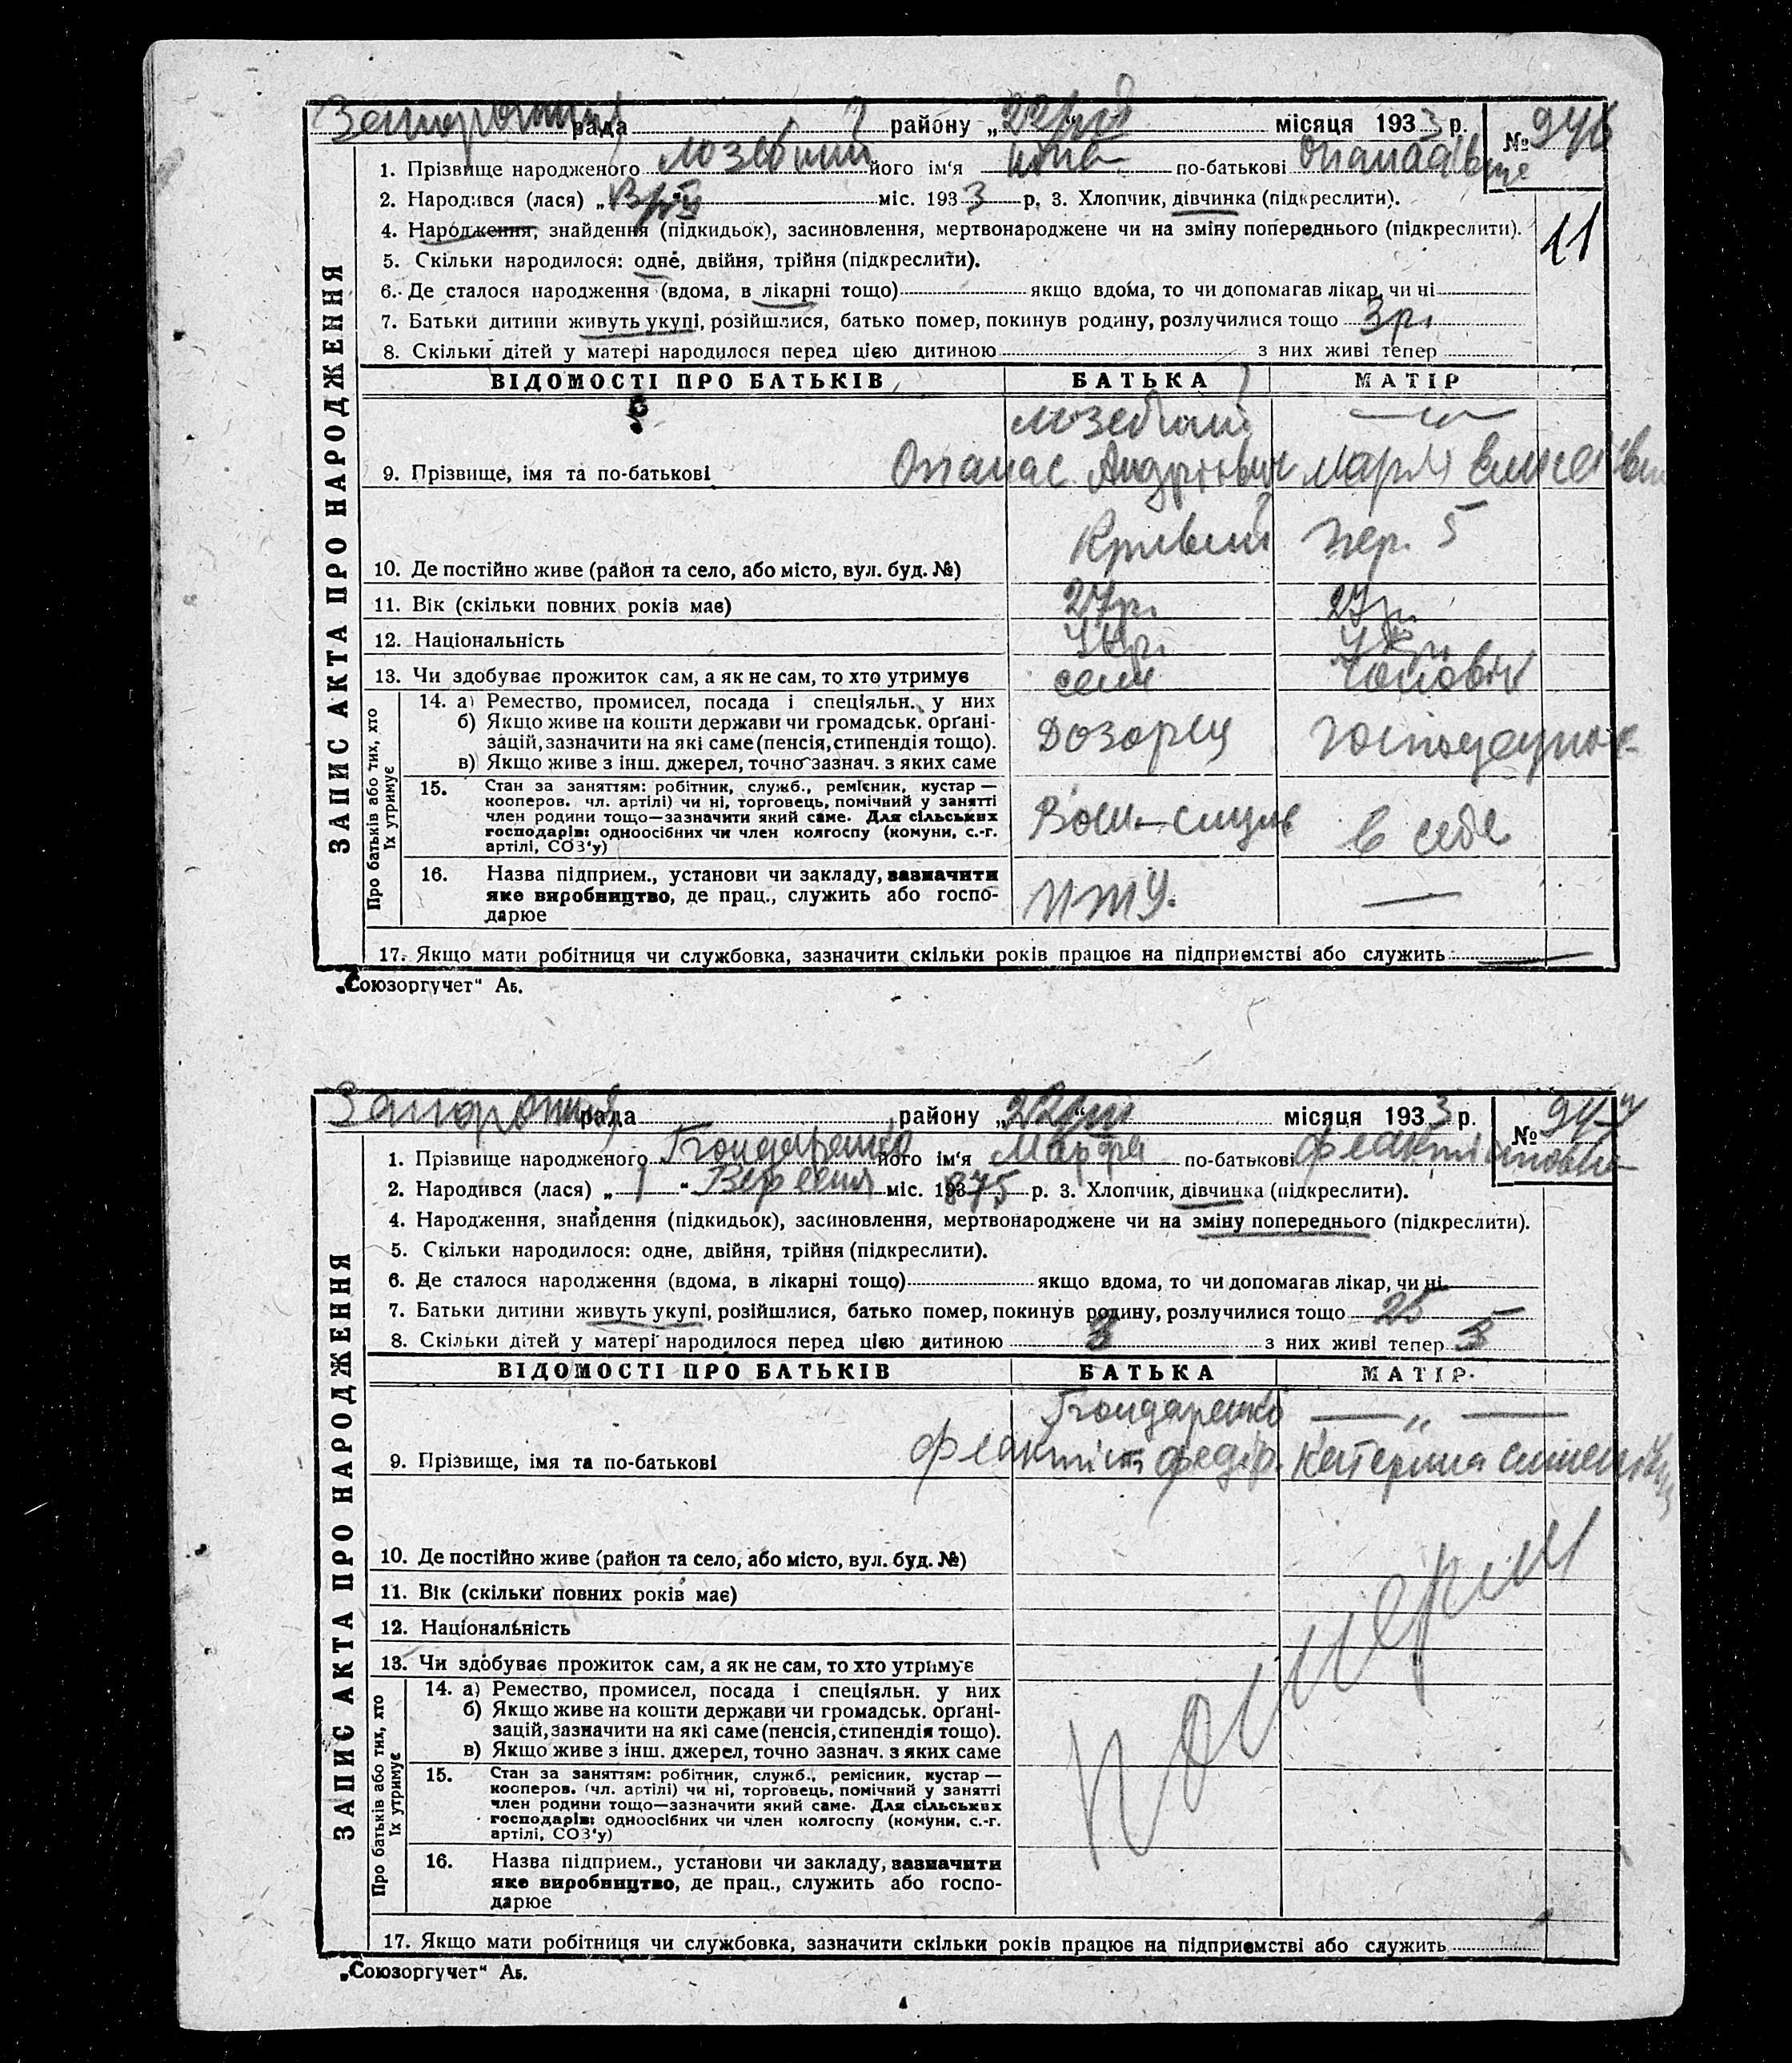 рада району „22/VIII“ місяця 1933 р. № 946
1. Прізвище народженого його ім'я по-батькові
2. Народився (лася) „ міс. 1933 р. 3. Хлопчик, дівчинка (підкреслити).
4. Народження, знайдення (підкидьок), засиновлення, мертвонароджене чи на зміну попереднього (підкреслити).
11
5. Скільки народилося: одне, двійня, трійня (підкреслити).
6. Де сталося народження (вдома, в лікарні тощо) якщо вдома, то чи допомагав лікар, чи ні
7. Батьки дитини живуть укупі, розійшлися, батько помер, покинув родину, розлучилися тощо 3 р.
8. Скільки дітей у матері народилося перед цією дитиною з них живі тепер
ЗАПИС АКТА ПРО НАРОДЖЕННЯ
ВІДОМОСТІ ПРО БАТЬКІВ БАТЬКА МАТІР
— „ —
9. Прізвище, імя та по-батькові Опанас Андрієвич Марія
10. Де постійно живе (район та село, або місто, вул. буд. №) Кривий пер. 5
11. Вік (скільки повних років має) 27 р. 27 р.
12. Національність Укр. Укр.
13. Чи здобуває прожиток сам, а як не сам, то хто утримує сам Чоловік
Про батьків або тих, хто їх утримує
14. а) Ремество, промисел, посада і спеціяльн. у них
б) Якщо живе на кошти держави чи громадськ. орґані-
зацій, зазначити на які саме (пенсія, стипендія тощо).
в) Якщо живе з інш. джерел, точно зазнач. з яких саме
Дозорец
15. Стан за заняттям: робітник, служб., ремісник, кустар —
кооперов. чл. артілі) чи ні, торговець, помічний у занятті
член родини тощо—зазначити який саме. Для сільських
господарів: одноосібних чи член колгоспу (комуни, с.-г.
артілі, СОЗ'у)
в себе
16. Назва підприєм., установи чи закладу, зазначити
яке виробництво, де прац., служить або госпо-
дарює
—
17. Якщо мати робітниця чи службовка, зазначити скільки років працює на підприємстві або служить —
„Союзоргучет“ Аб.
рада району „22/VIII“ місяця 1933 р. № 947
1. Прізвище народженого Гончаренко його ім'я Марфа по-батькові
2. Народився (лася) „1“ Вересня міс. 1875 р. 3. Хлопчик, дівчинка (підкреслити).
4. Народження, знайдення (підкидьок), засиновлення, мертвонароджене чи на зміну попереднього (підкреслити).
5. Скільки народилося: одне, двійня, трійня (підкреслити).
6. Де сталося народження (вдома, в лікарні тощо) якщо вдома, то чи допомагав лікар, чи ні
7. Батьки дитини живуть укупі, розійшлися, батько помер, покинув родину, розлучилися тощо 25
8. Скільки дітей у матері народилося перед цією дитиною 3 з них живі тепер 3
ЗАПИС АКТА ПРО НАРОДЖЕННЯ
ВІДОМОСТІ ПРО БАТЬКІВ БАТЬКА МАТІР
Гончаренко — „ —
9. Прізвище, імя та по-батькові Федір. Катерина
10. Де постійно живе (район та село, або місто, вул. буд. №)
11. Вік (скільки повних років має)
12. Національність
13. Чи здобуває прожиток сам, а як не сам, то хто утримує
Про батьків або тих, хто їх утримує
14. а) Ремество, промисел, посада і спеціяльн. у них
б) Якщо живе на кошти держави чи громадськ. орґані-
зацій, зазначити на які саме (пенсія, стипендія тощо).
в) Якщо живе з інш. джерел, точно зазнач. з яких саме
15. Стан за заняттям: робітник, служб., ремісник, кустар —
кооперов. (чл. артілі) чи ні, торговець, помічний у занятті
член родини тощо—зазначити який саме. Для сільських
господарів: одноосібних чи член колгоспу (комуни, с.-г.
артілі, СОЗ'у)
16. Назва підприєм., установи чи закладу, зазначити
яке виробництво, де прац., служить або госпо-
дарює
17. Якщо мати робітниця чи службовка, зазначити скільки років працює на підприємстві або служить
„Союзоргучет“ Аб.